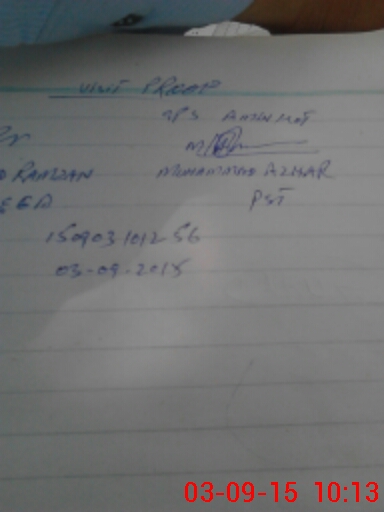 VISIT PROOF
GPS AMIN MOT
RAMZAN
MUHAMMAD AZHAR
PST
150903101256
03-09-2015
03-09-15 10:13